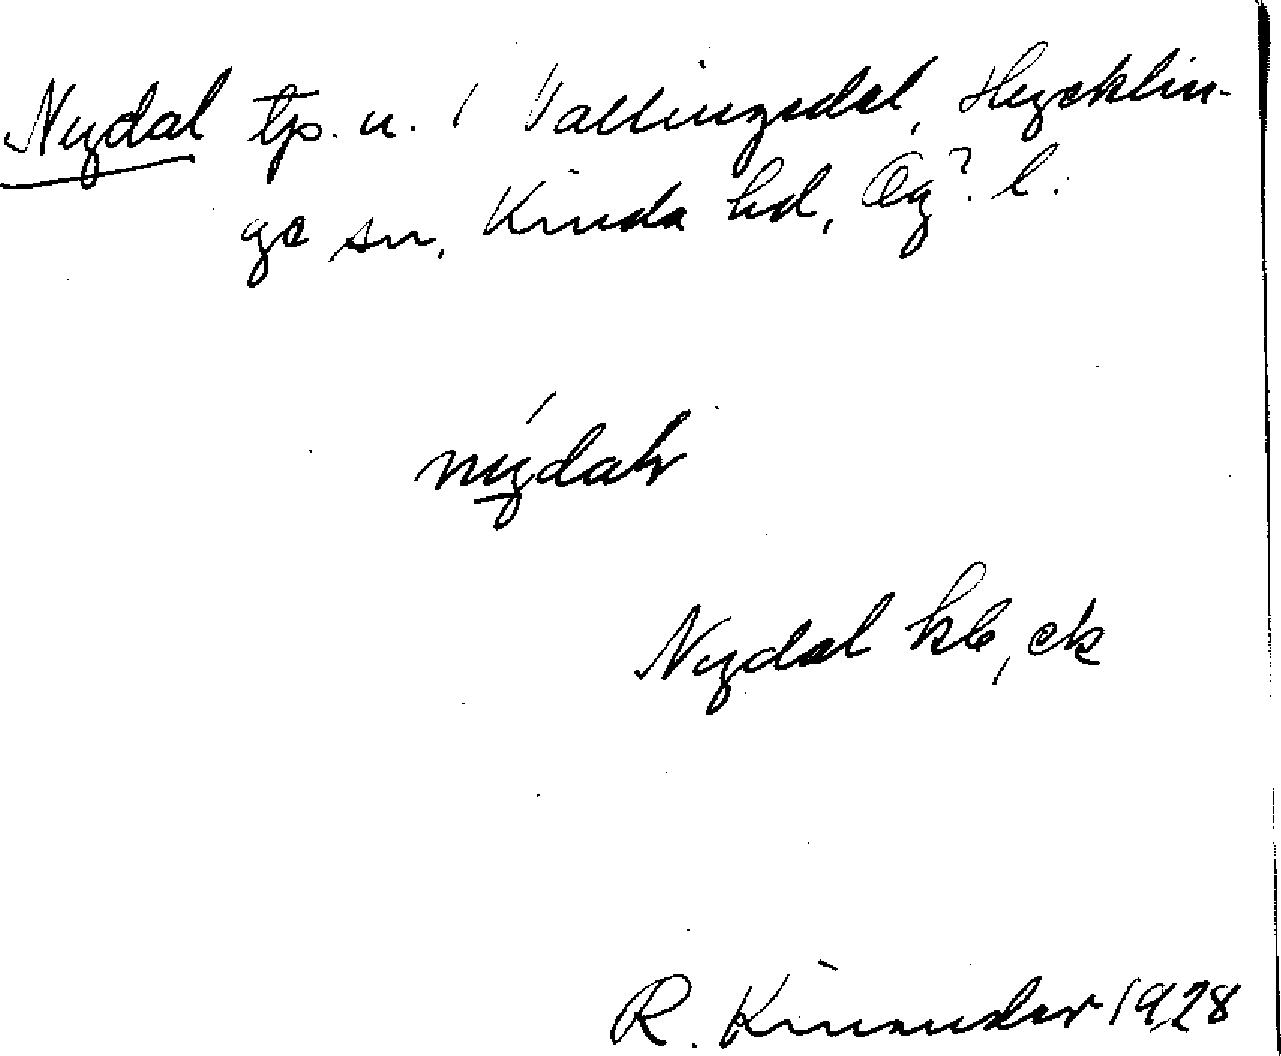 Nydal tp. u. / Vallingedal, Hycklin-
ge sn, Kinda hd, Ög. l.
nýdalr
Nydal kb, ek
R. Kinander 1928